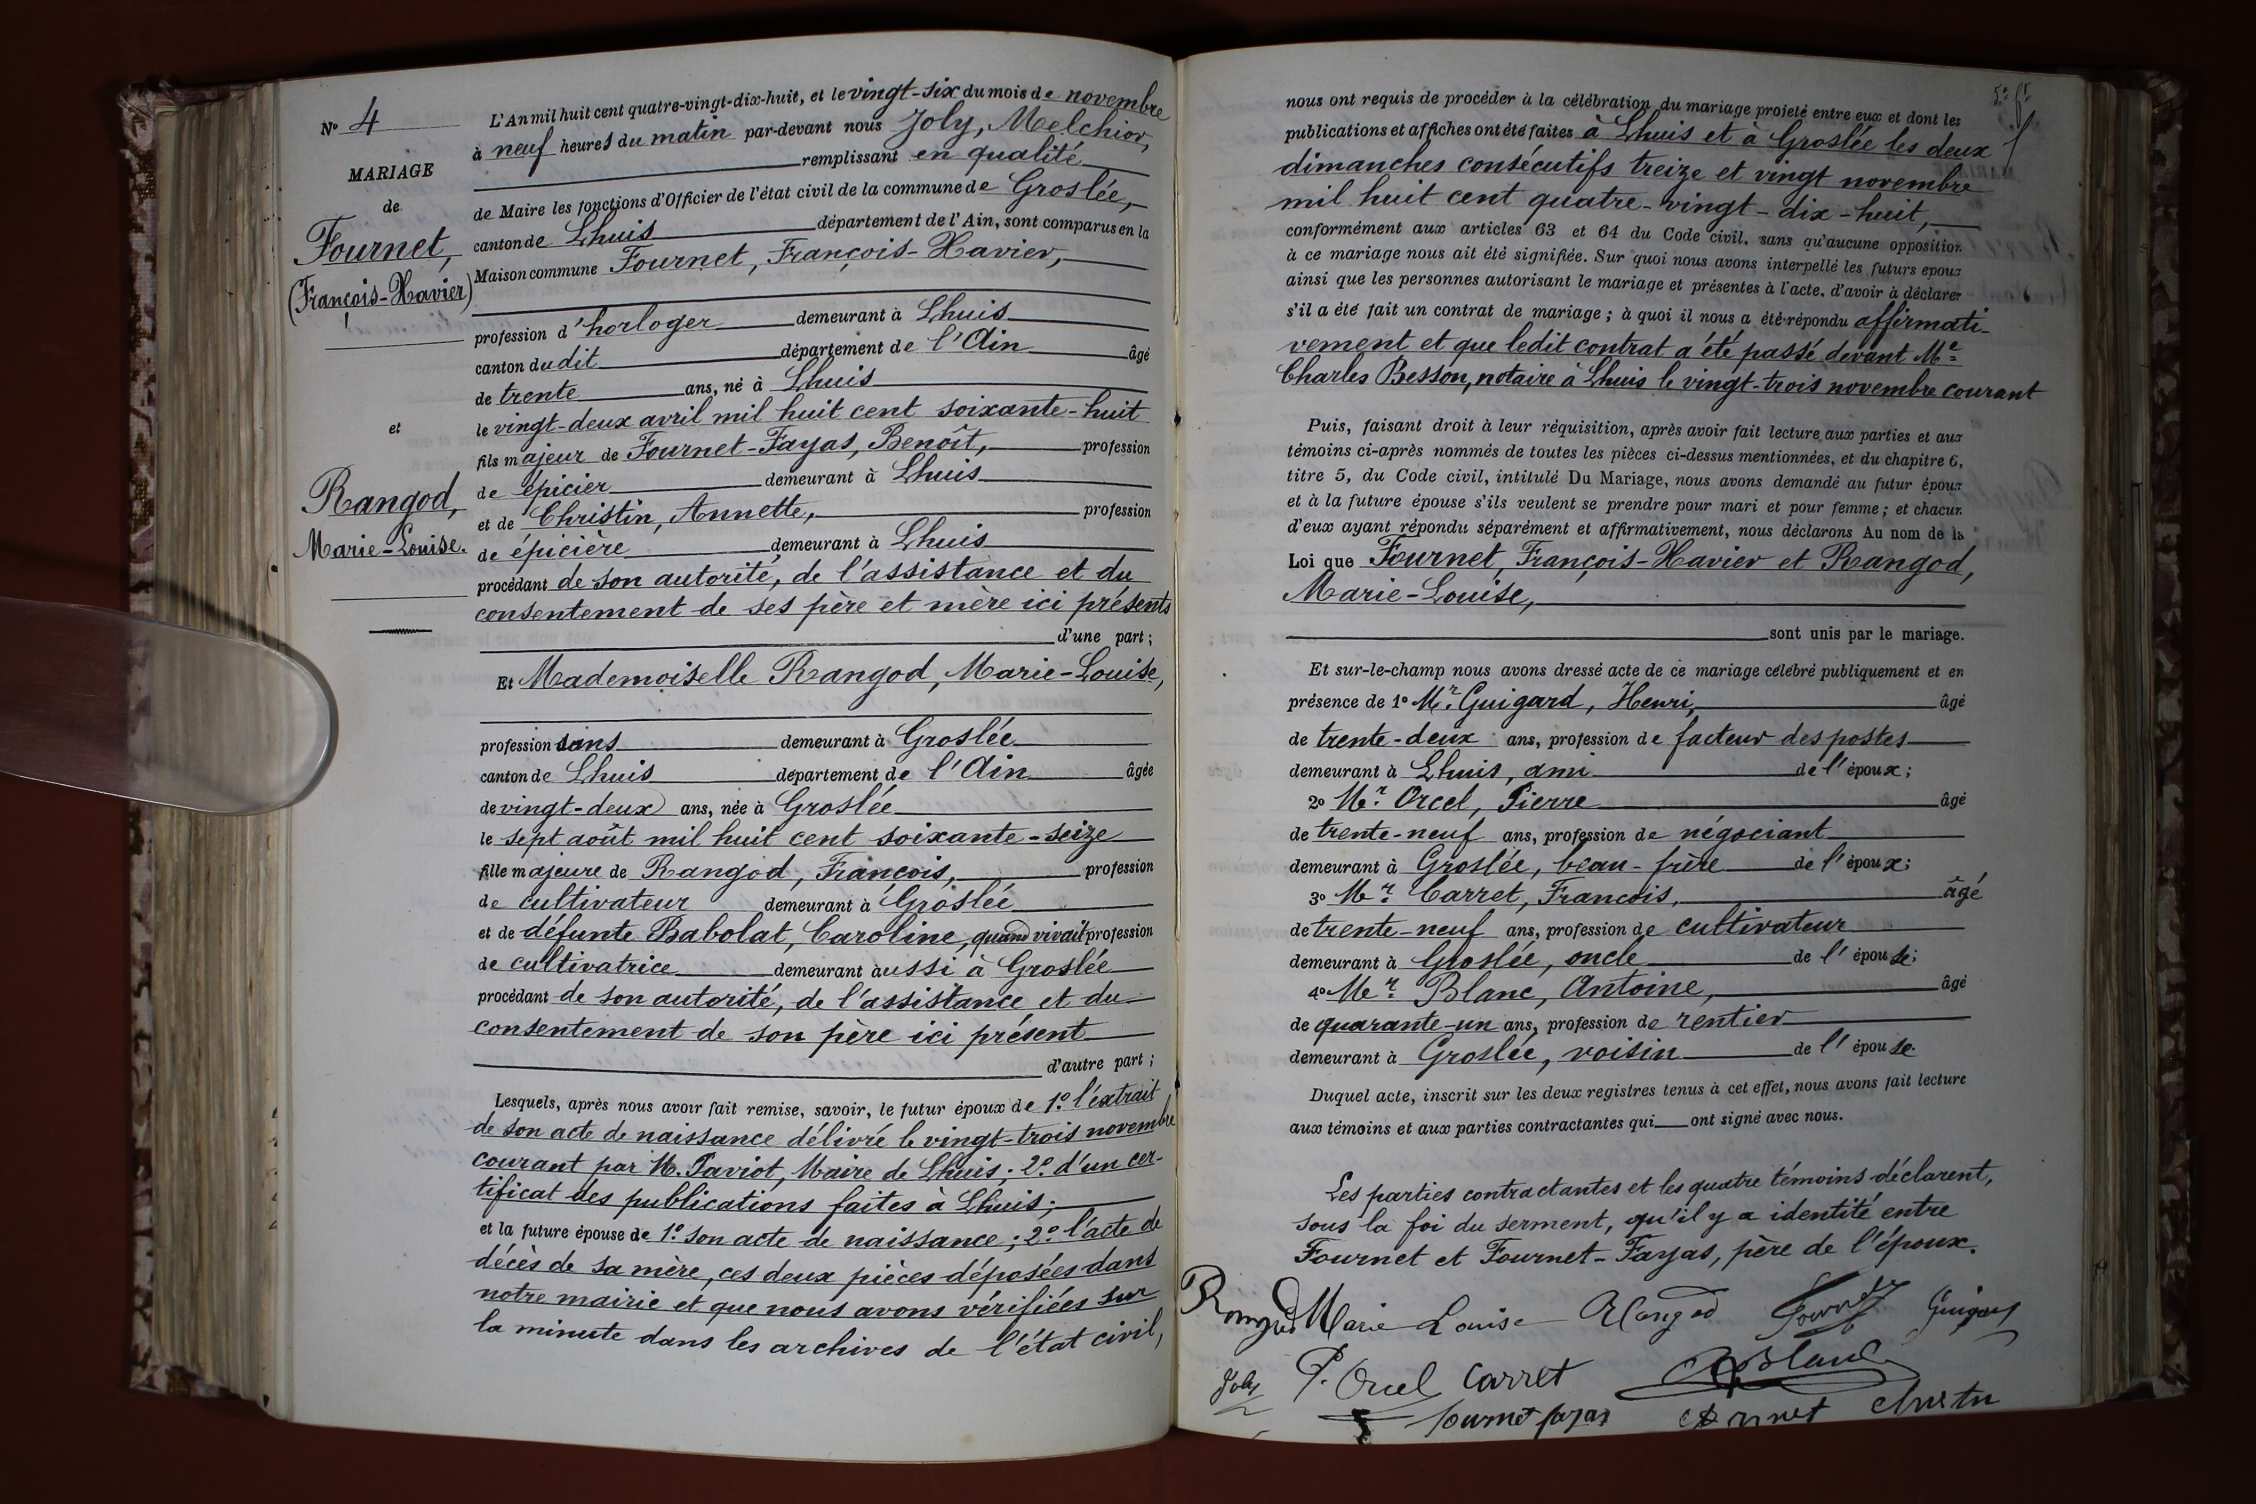 N° 4
MARIAGE
de
Fournet,
(François-Xavier)
et
Rangod,
Marie-Louise.
L'An mil huit cent quatre-vingt-dix-huit, et le vingt-six du mois de novembre
à neuf heures du matin par-devant nous Joly, Melchior,
remplissant en qualité
de Maire les fonctions d'Officier de l'état civil de la commune de Groslée,
canton de Lhuis département de l'Ain, sont comparus en la
Maison commune Fournet, François-Xavier,
profession d'horloger demeurant à Lhuis
canton dudit département de l'Ain âgé
de trente ans, né à Lhuis
le vingt-deux avril mil huit cent soixante-huit
fils majeur de Fournet-Fayas, Benoît, profession
de épicier demeurant à Lhuis
et de Christin, Annette, profession
de épicière demeurant à Lhuis
procédant de son autorité, de l'assistance et du
consentement de ses père et mère ici présents
d'une part;
Et Mademoiselle Rangod, Marie-Louise,
profession sans demeurant à Groslée
canton de Lhuis département de l'Ain âgée
de vingt-deux ans, née à Groslée
le sept août mil huit cent soixante-seize
fille majeure de Rangod, François, profession
de cultivateur demeurant à Groslée
et de défunte Babolat, Caroline, quand vivait profession
de cultivatrice demeurant aussi à Groslée
procédant de son autorité, de l'assistance et du
consentement de son père ici présent
d'autre part;
Lesquels, après nous avoir fait remise, savoir, le futur époux de 1° l'extrait
de son acte de naissance délivré le vingt-trois novembre
courant par M. Paviot, Maire de Lhuis; 2° d'un cer-
tificat des publications faites à Lhuis;
et la future épouse de 1° son acte de naissance; 2° l'acte de
décès de sa mère, ces deux pièces déposées dans
notre mairie et que nous avons vérifiées sur
la minute dans les archives de l'état civil,
nous ont requis de procéder à la célébration du mariage projeté entre eux et dont les
publications et affiches ont été faites à Lhuis et à Groslée les deux
dimanches consécutifs treize et vingt novembre
mil huit cent quatre-vingt-dix-huit,
conformément aux articles 63 et 64 du Code civil, sans qu'aucune opposition
à ce mariage nous ait été signifiée. Sur quoi nous avons interpellé les futurs epoux
ainsi que les personnes autorisant le mariage et présentes à l'acte, d'avoir à déclarer
s'il a été fait un contrat de mariage; à quoi il nous a été répondu affirmati-
vement et que ledit contrat a été passé devant Me
Charles Besson, notaire à Lhuis le vingt-trois novembre courant
Puis, faisant droit à leur réquisition, après avoir fait lecture aux parties et aux
témoins ci-après nommés de toutes les pièces ci-dessus mentionnées, et du chapitre 6,
titre 5, du Code civil, intitulé Du Mariage, nous avons demandé au futur époux
et à la future épouse s'ils veulent se prendre pour mari et pour femme; et chacun
d'eux ayant répondu séparément et affirmativement, nous déclarons Au nom de la
Loi que Fournet, François-Xavier et Rangod,
Marie-Louise,
sont unis par le mariage.
Et sur-le-champ nous avons dressé acte de ce mariage célébré publiquement et en
présence de 1° Mr. Guigard, Henri, âgé
de trente-deux ans, profession de facteur des postes
demeurant à Lhuis, ami de l'époux;
2° Mr. Orcel, Pierre âgé
de trente-neuf ans, profession de négociant
demeurant à Groslée, beau-frère de l'époux;
3° Mr. Carret, François, âgé
de trente-neuf ans, profession de cultivateur
demeurant à Groslée, oncle de l'épouse;
4° Mr. Blanc, Antoine, âgé
de quarante-un ans, profession de rentier
demeurant à Groslée, voisin de l'épouse.
Duquel acte, inscrit sur les deux registres tenus à cet effet, nous avons fait lecture
aux témoins et aux parties contractantes qui ont signé avec nous.
Les parties contractantes et les quatre témoins déclarent,
sous la foi du serment, qu'il y a identité entre
Fournet et Fournet-Fayas, père de l'époux.
Rangod Marie Louise Rangod Fournet Guigard
Joly P. Orcel Carret A Blanc
fournet fayas Annet christin